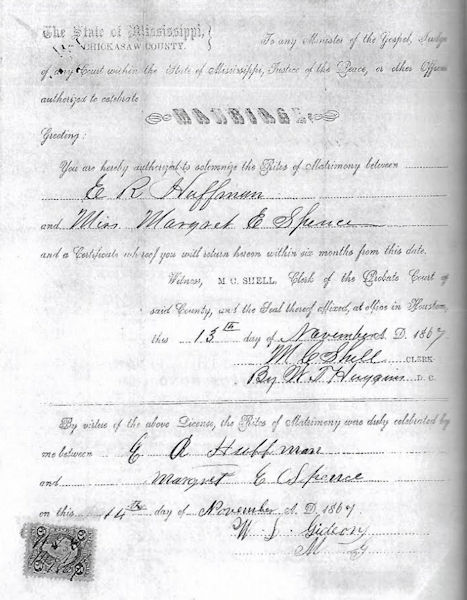 The State of Mississippi,
CHICKASAW COUNTY.
To any Minister of the Gospel, Judge
of any Court within the State of Mississippi, Justice of the Peace, or other Officer
authorized to celebrate
MARRIAGE:
Greeting:
You are hereby authorized to solemnize the Rites of Matrimony between
E R Huffman
and Miss Margret E Spence
and a Certificate whereof you will return hereon within six months from this date.
Witness, M C. SHELL, Clerk of the Probate Court of
said County, and the Seal thereof affixed, at office in Houston,
this 13th day of November A. D. 1867
M C Shell CLERK
By W T Huggins D. C.
By virtue of the above License, the Rites of Matrimony were duly celebrated by
me between E R Huffman
and Margret E Spence
on this 14th day of November A. D. 1867
W J Gideon
M G